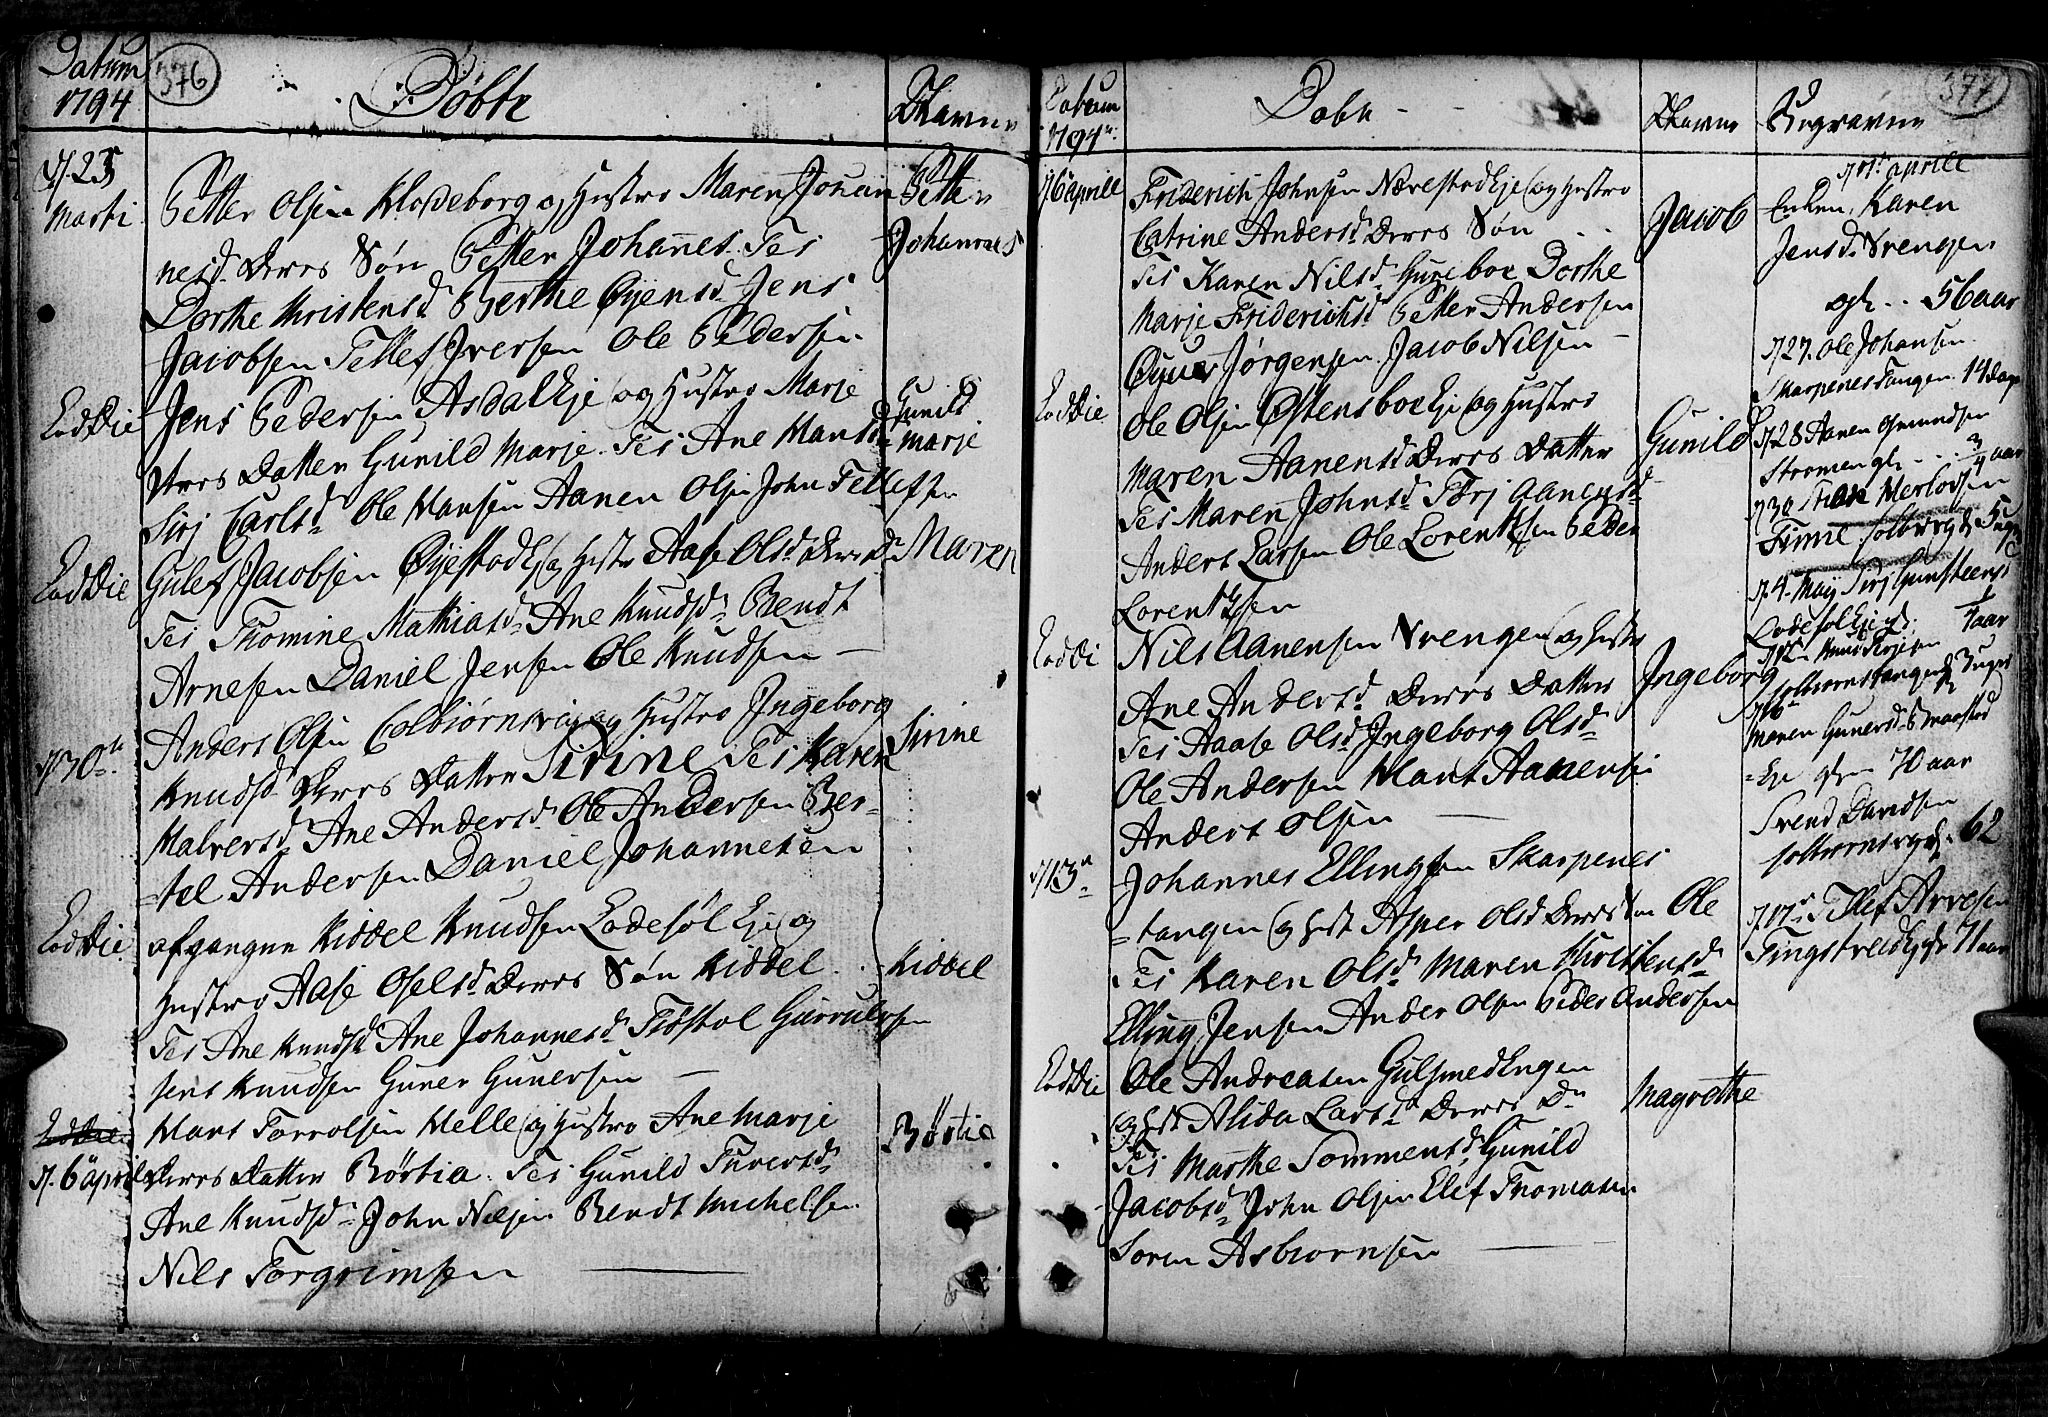 Datum
1794
376
Døbte
Navne
d/ 23
Marti
Petter Olsen Klodeborg og Hustro Maren Johan
nesd. Deres Søn Petter Johannes. Tes
Dorthe Christensd. Berthe Øyensd. Jens
Jacobsen Tellef Iversen Ole Pedersen
Petter
Johannes
Eod Die
Jens Pedersen Asdal Eje og Hustro Marje
Deres Datter Gunild Marje. Tes Ane Hansd.
Sirj Carlsd. Ole Hansen Aanen Olsen John Tellefsen
Gunild
Marje
Eod Die
Gulef Jacobsen Øyestad Ej og Hustr Aase Olsd. Deres Dr
Tes Thomine Mathiasd. Ane Knudsd. Bendt
Arnesen Daniel Jensen Ole Knudsen
Maren
d/ 30te
Anders Olsen Colbiørns og Hustro Ingeborg
Knudsd. Deres Datter Sirine Tes Karen
Halversd. Ane Andersd. Ole Andersen Ber-
-tel Andersen Daniel Johannesen
Sirine
Eod Die
afgangne Kiddel Knudsen Lodesøl Eje og
Hustro Aase Oselsd. Deres Søn Kiddel
Tes Ane Knudsd. Ane Johannesd. Tiøstol Gurrulfsen
Jens Knudsen Guner Gunersen
Kiddel
Eod Die
d. 6 April
Hans Torrolsen Helle og Hustro Ane Marje
Deres Datter Børtia. Tes Gunild Tversd.
Ane Knudsd. John Nilsen Bendt Michelsen
Nils Torgrimsen
Børtia
Datum
1794
Døbte
Navne
Begravne
377
d/ 6 Aprill
Friderich Johnsen Nærestad Eje og Hustro
Catrine Andersd. Deres Søn
Tes Karen Nilsd. Gureboe Dorthe
Marje Friderichsd. Petter Andersen
Øyue Jørgensen Jacob Nilsen
Jacob
Eod Die
Ole Olsen Østensboe Eje og Hustro
Maren Aanensd. Deres Datter
Tes Maren Johnsd. Torj Aanensd.
Anders Larsen Ole Lorentzsen Peder
Lorentzsen
Gunild
Eod Di
Nils Aanensen Vrengen og Hustr
Ane Andersd. Deres Datter
Tes Aase Olsd. Ingeborg Olsd.
Ole Andersen Hans Aanensen
Anders Olsen
Ingeborg
d/ 13
Johannes Ellingsen Skarpenes
-tangen og Hust Asper Olsd. Deres Søn Ole
Tes Karen Olsd. Maren Christensd.
Elling Jensen Ander Olsen Peder Andersen
Eod Die
Ole Andreasen Gulsmed Engen
og Hst Alida Larsd. Deres Dr
Tes Marthe Sommensd. Gunild
Jacobsd. John Olsen Elef Thomasen
Søren Asbiørnsen
Magrethe
d/ 1 Aprill
Enken Karen
Jensd. Vrengen
gl. 56 aar
d/ 27. Ole Johansen
Skarpenes Tangen 14 dage
d/ 28 Aanen Omundsen
Strømen gl. 3/4 aar
d/ 30 Herlofsen
d. 4 Maij Sirj Gunsteensd.
Lodesøl Eje 1/4 aar
d/ 16
Maren Gunersd. Smaastad
-Eje 70 aar
Svend Davidsen
62
d/ 17 Tellef Arvesen
Tingstveid Eje gl. 71 aar